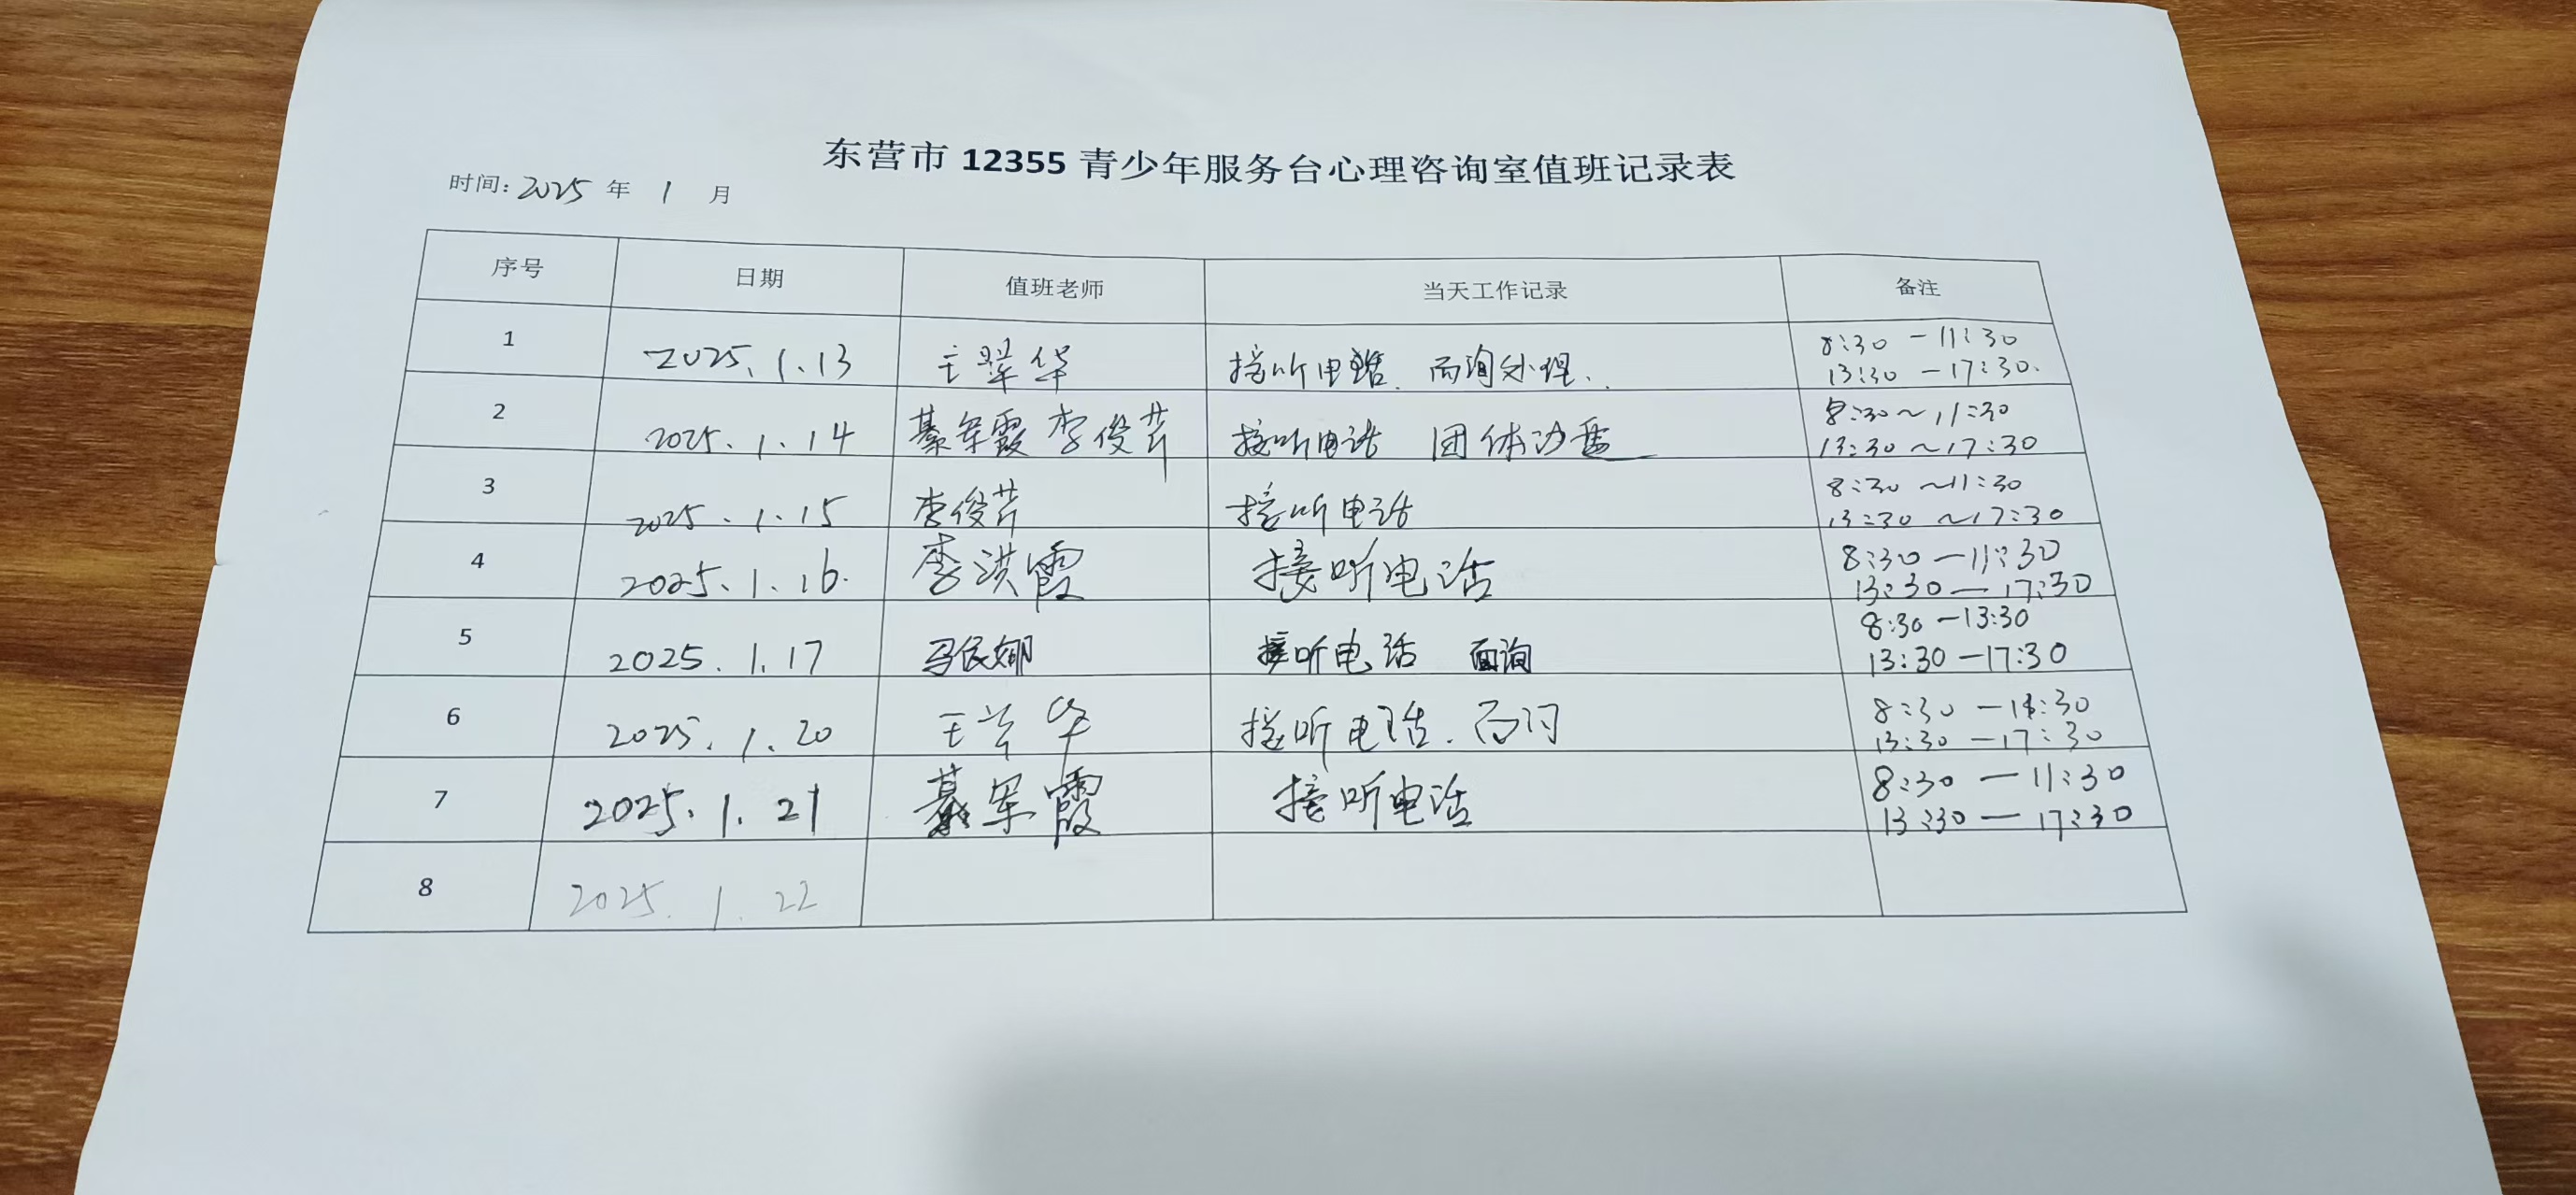 东营市 12355 青少年服务台心理咨询室值班记录表
时间: 2025 年 1 月
序号 日期 值班老师 当天工作记录 备注
1 2025.1.13 王翠华 接听电话. 面询处理.. 8:30 - 11:30
13:30 - 17:30.
2 2025.1.14 綦军霞 李俊芹 接听电话 团体沙盘 8:30~11:30
13:30~17:30
3 2025.1.15 李俊芹 接听电话 8:30~11:30
13:30~17:30
4 2025.1.16. 李洪霞 接听电话 8:30—11:30
13:30—17:30
5 2025.1.17 冯民娜 接听电话 面询 8:30-13:30
13:30-17:30
6 2025.1.20 王 华 接听电话. 8:30-11:30
13:30-17:30
7 2025.1.21 綦军霞 接听电话 8:30—11:30
13:30—17:30
8 2025.1.22